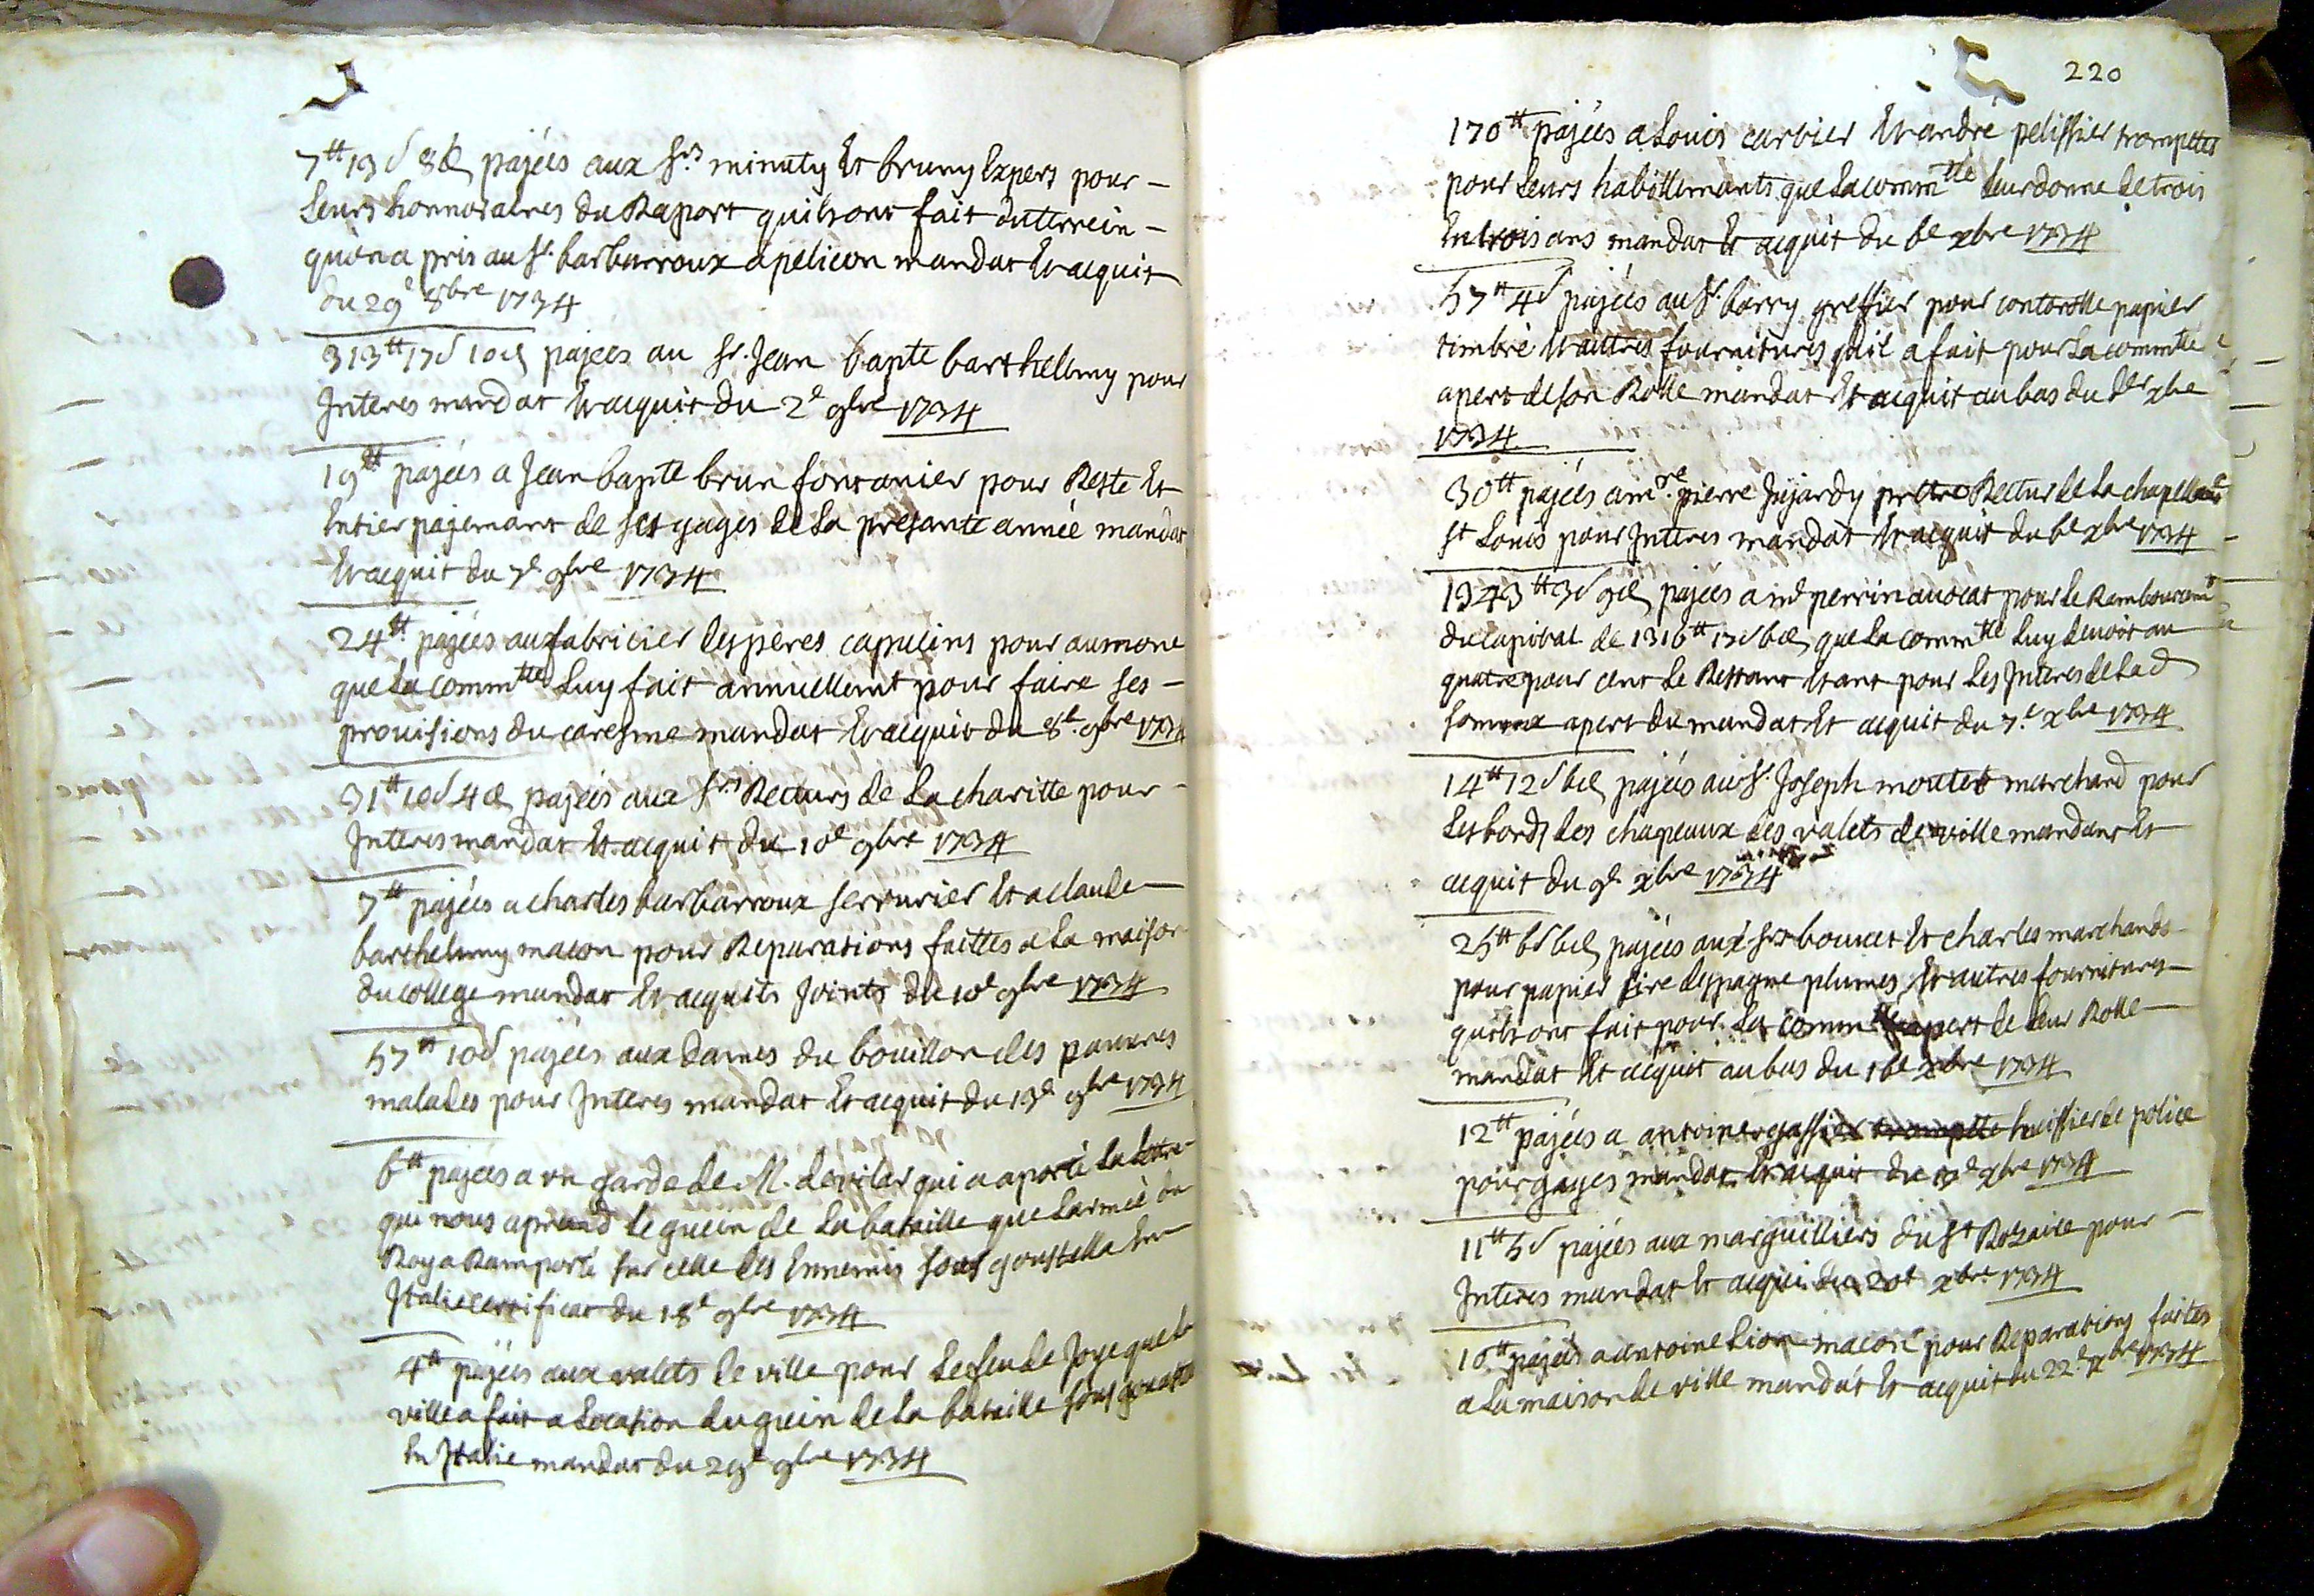 7tt 13s 8d pajées aux srs minuty Et bruny Expers pour -
Leurs honnoraires du Raport quils ont fait du terrein -
quon a pris au sr. barbarroux a pelicon mandat Et acquit
du 29e 8bre 1734
313tt 17s 10d pajées au sr. Jean bapte barthellemy pour
Interes mandat Et acquit du 2e 9bre 1734
19tt pajées a Jean bapte brun fontanier pour Reste Et
Entier pajemant de ses gages de La presante année mandat
Et acquit du 7e 9bre 1734
24tt pajées au fabricier des peres capucins pour aumone
que La commtté Luy fait annuellemt pour faire ses -
prouisions du caresme mandat Et acquit du 8e 9bre 1734
31tt 10s 4d pajées aux srs Recturs de La charitte pour -
Interes mandat Et acquit du 10e 9bre 1734
7tt pajées a charles barbarroux serrurier Et a claude
barthelemy macon pour Reparations faittes a La maison
du college mandat Et acquits Joints du 10e 9bre 1734
57tt 10s pajées aux dames du bouillon des pauures
malades pour Interes mandat Et acquit du 13e 9bre 1734
6tt pajées a un garde de M. de vilar qui a aporté La Lettre
qui nous aprend le guein de La bataille que Larmée du
Roy a Ramporté sur celle des Ennemis sous goustella En
Italie certificat du 18e 9bre 1734
4tt pajées aux valets de ville pour Le feu de Joye que La
ville a fait a Location du guein de La bataille sous
En Italie mandat du 29e 9bre 1734
220
170tt pajées a Louis carbier Et andré pelissier trompettes
pour Leurs habillemants que La commtté Leur donne de trois
En trois ans mandat Et acquit du 6e xbre 1734
57tt 4s pajées au sr. barry greffier pour contorolle papier
timbré Et autres fournitures quil a fait pour La commtté
apert de son Rolle mandat Et acquit au bas du xbre
1734
30tt pajées a mre pierre Jujardy prettre Rectur de La chapelle
st Louis pour Interes mandat Et acquit du 6e xbre 1734
1343tt 3s 9d pajées a md perrin auocat pour Le Rambourcemt
du capital de 1316tt 17s 6d que La commtté Luy deuoit au
quatre pour cent Le Restant Etant pour Les Interes de Lad
somme apert du mandat Et acquit du 7e xbre 1734
14tt 12s 6d pajées au sr. Joseph moutet marchand pour
Les bords des chapeaux des valets de ville mandat Et
acquit du 9e xbre 1734
25tt 6s 6d pajées aux srs boucet Et charles marchands
pour papier sire despagne plumes Et autres fournitures
quils ont fait pour La commtté apert de Leur Rolle
mandat Et acquit au bas du 16e xbre 1734
12tt pajées a antoine gassier trompette huissier de police
pour gages mandat Et acquit du 17e xbre 1734
11tt 5s pajées aux marguilliers du st Rozaire pour -
Interes mandat Et acqui du 20e xbre 1734
10tt pajées a antoine Lion macon pour Reparations faites
a La maison de ville mandat Et acquit du 22e xbre 1734